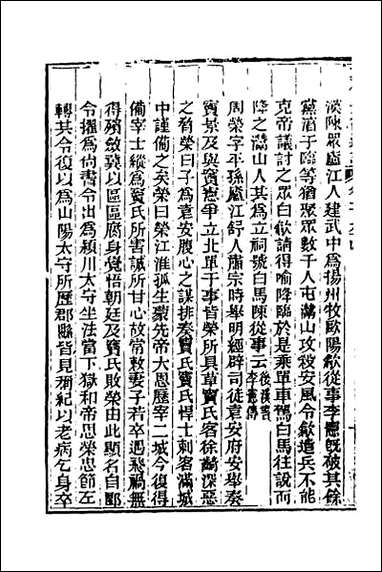 漢陳眾廬江人建武中為揚州牧歐陽歙從事李憲旣破其餘
黨淳于臨等猶聚眾數千人屯灊山攻殺安風令歙遣兵不能
克帝議討之眾白歙請得喻降臨於是乘單車駕白馬往說而
降之灊山人其為立祠號白馬陳從事云後漢書李憲傳
周榮字平孫廬江舒人肅宗時舉明經辟司徒袁安府安舉奏
竇景及與竇憲爭立北單于事皆榮所具草竇氏客徐齮深惡
之脅榮曰子為袁公腹心之謀排奏竇氏竇氏悍士刺客滿城
中謹備之矣榮曰榮江淮孤生蒙先帝大恩歷宰二城今復得
備宰士縱為竇氏所害誠所甘心故常敕妻子若卒遇飛禍無
得殯斂冀以區區腐身覺悟朝廷及竇氏敗榮由此顯名自郾
令擢為尚書令出為潁川太守坐法當下獄和帝思榮忠節左
轉共令復以為山陽太守所歷郡縣皆見稱紀以老病乞身卒